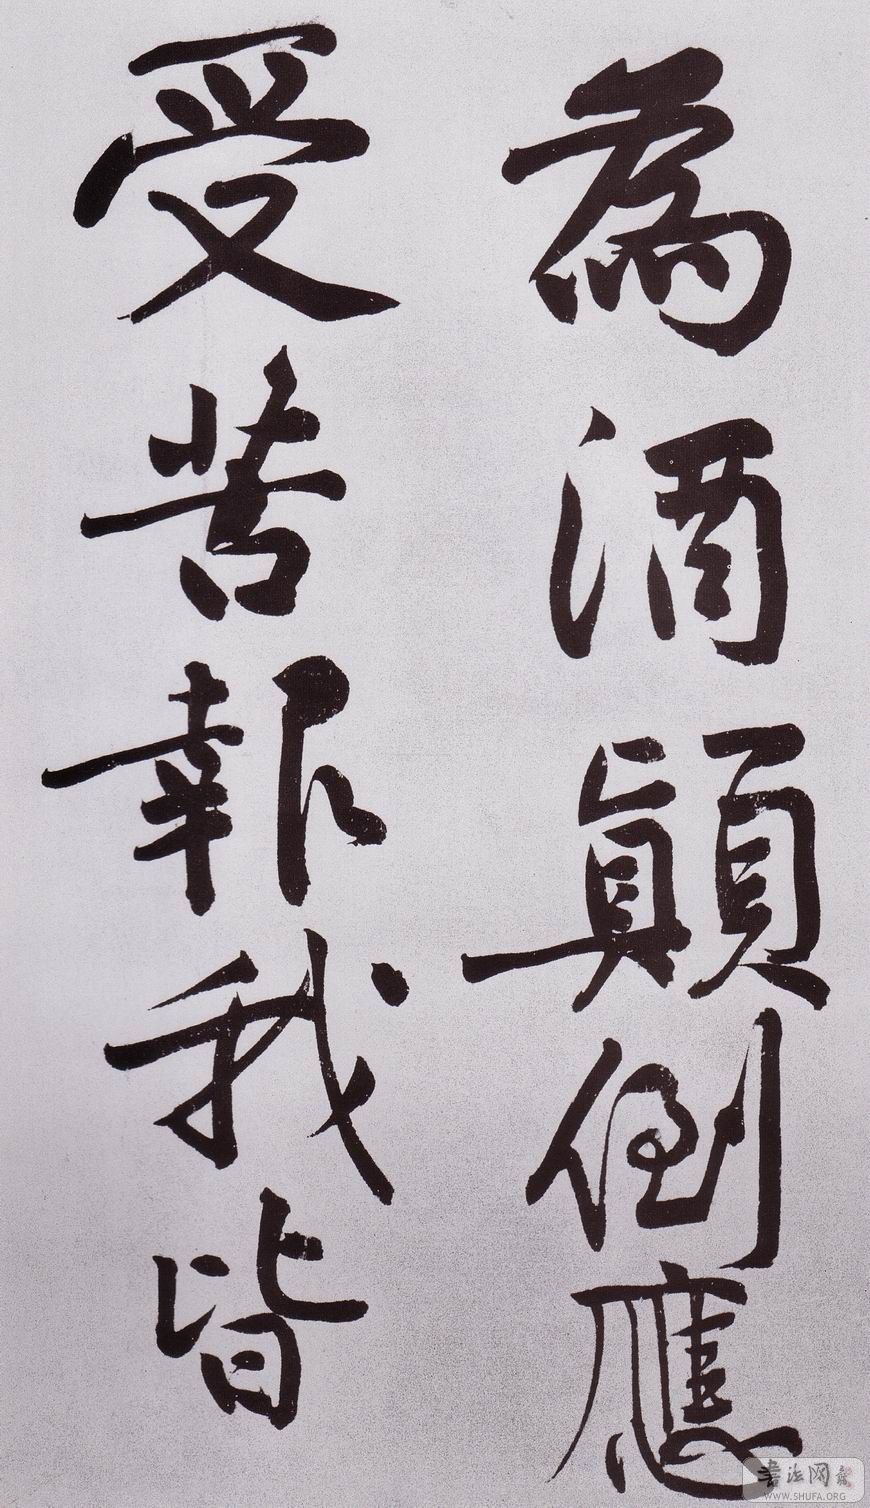 為酒顛倒應
受苦報我皆
書法网
WWW.SHUFA.ORG